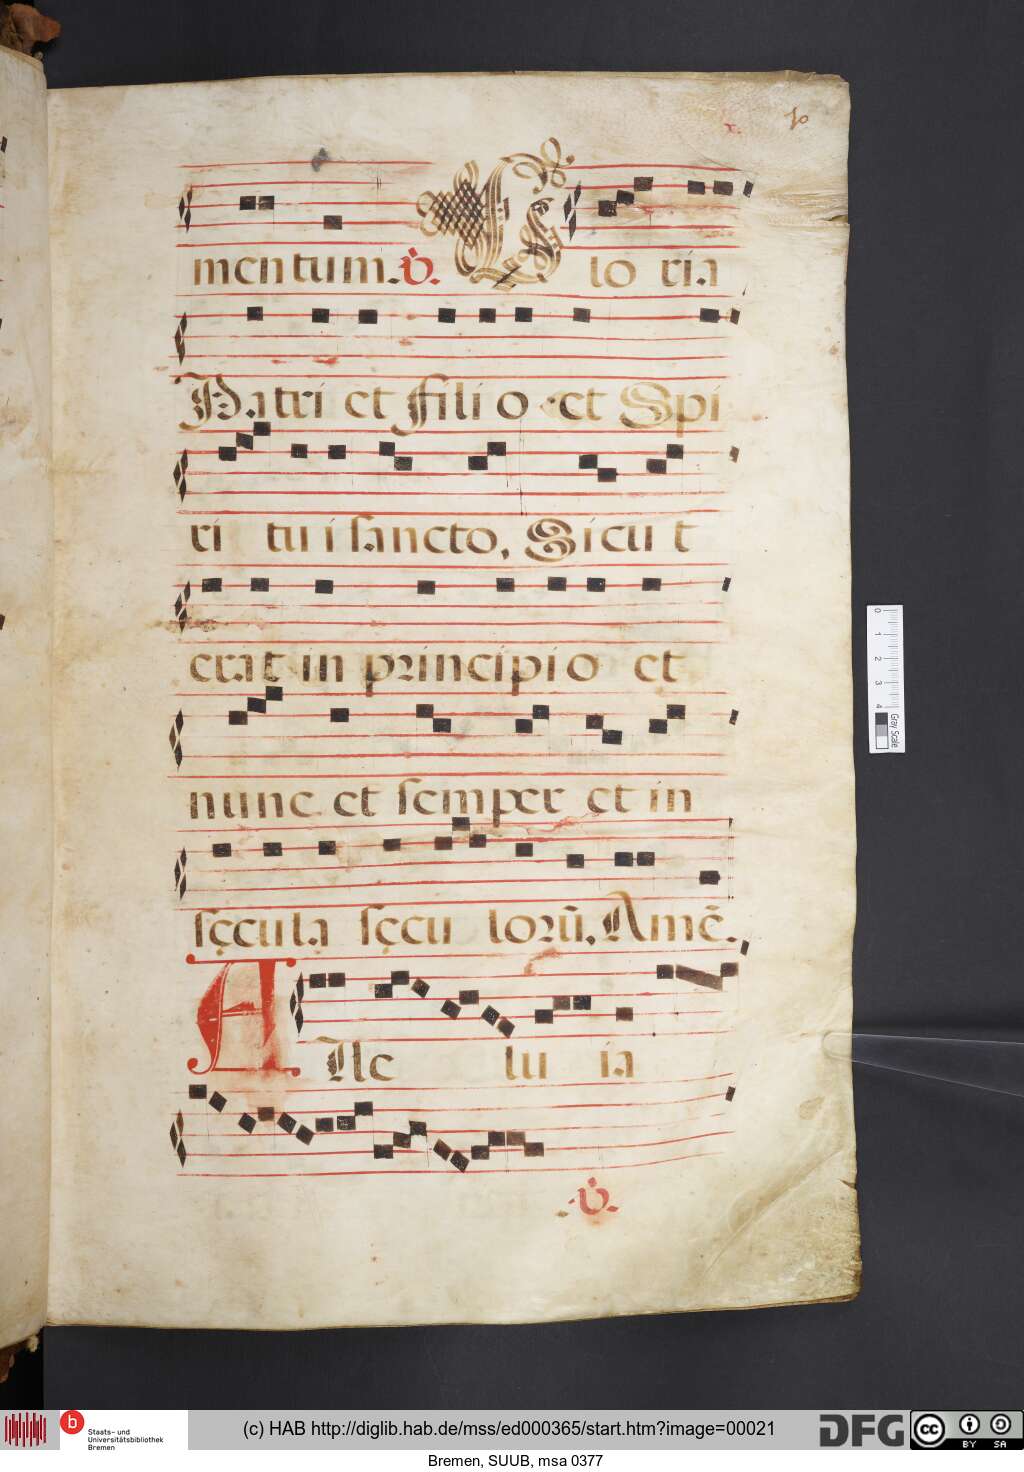 x. 10
mentum. V. Glo ria
Patri et Filio et Spi
ri tui sancto, Sicut
erat in principio et
nunc et semper et in
sęcula sęcu lorũ. Amẽ.
Alle lu ia
V.
0 1 2 3 4 Gray Scale
b Staats- und Universitätsbibliothek Bremen
(c) HAB http://diglib.hab.de/mss/ed000365/start.htm?image=00021
DFG
cc BY SA
Bremen, SUUB, msa 0377